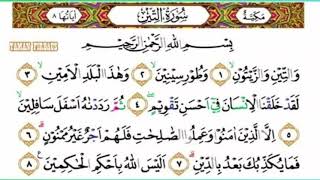 مكية سورة التين آياتها ٨
TAMAN TERBATS
بِسْمِ اللهِ الرَّحْمٰنِ الرَّحِيْمِ
وَالتِّيْنِ وَالزَّيْتُوْنِ ١ وَطُوْرِ سِيْنِيْنَ ٢ وَهٰذَا الْبَلَدِ الْاَمِيْنِ ٣
لَقَدْ خَلَقْنَا الْاِنْسَانَ فِيْٓ اَحْسَنِ تَقْوِيْمٍ ٤ ثُمَّ رَدَدْنٰهُ اَسْفَلَ سَافِلِيْنَ
٥ اِلَّا الَّذِيْنَ اٰمَنُوْا وَعَمِلُوا الصّٰلِحٰتِ فَلَهُمْ اَجْرٌ غَيْرُ مَمْنُوْنٍ ٦
فَمَا يُكَذِّبُكَ بَعْدُ بِالدِّيْنِ ٧ اَلَيْسَ اللهُ بِاَحْكَمِ الْحٰكِمِيْنَ ٨